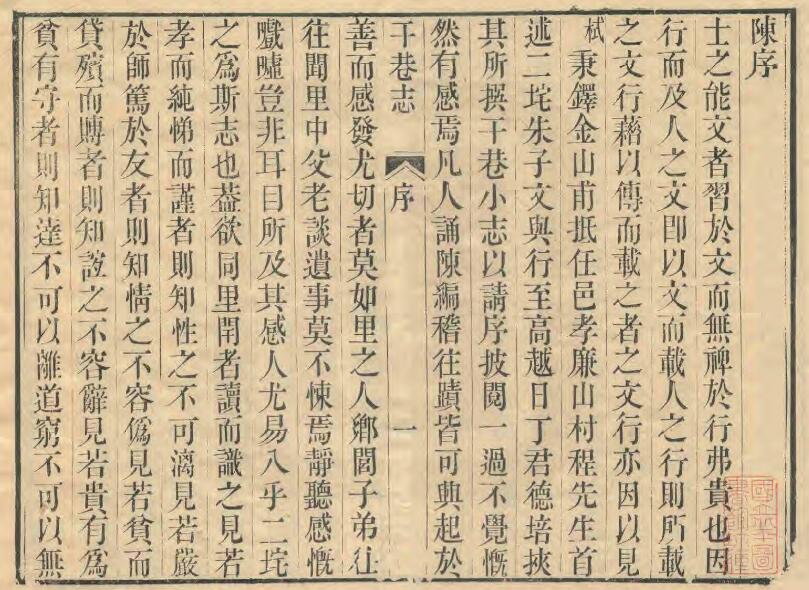 陳序
士之能文者習於文而無裨於行弗貴也因
行而及人之文卽以文而載人之行則所載
之文行藉以傳而載之者之文行亦因以見
栻秉鐸金山甫抵任邑孝廉山村程先生首
述二垞朱子文與行至高越日丁君德培挾
其所撰干巷小志以請序披閱一過不覺慨
然有感焉凡人誦陳編稽往蹟皆可興起於
干巷志 序 一
善而感發尤切者莫如里之人鄉閭子弟往
往聞里中父老談遺事莫不悚焉靜聽感慨
嚱嘘豈非耳目所及其感人尤易入乎二垞
之爲斯志也葢欲同里閈者讀而識之見若
孝而純悌而謹者則知性之不可漓見若嚴
於師篤於友者則知情之不容僞見若貧而
貸殯而賻者則知誼之不容辭見若貴有爲
貧有守者則知達不可以離道窮不可以無